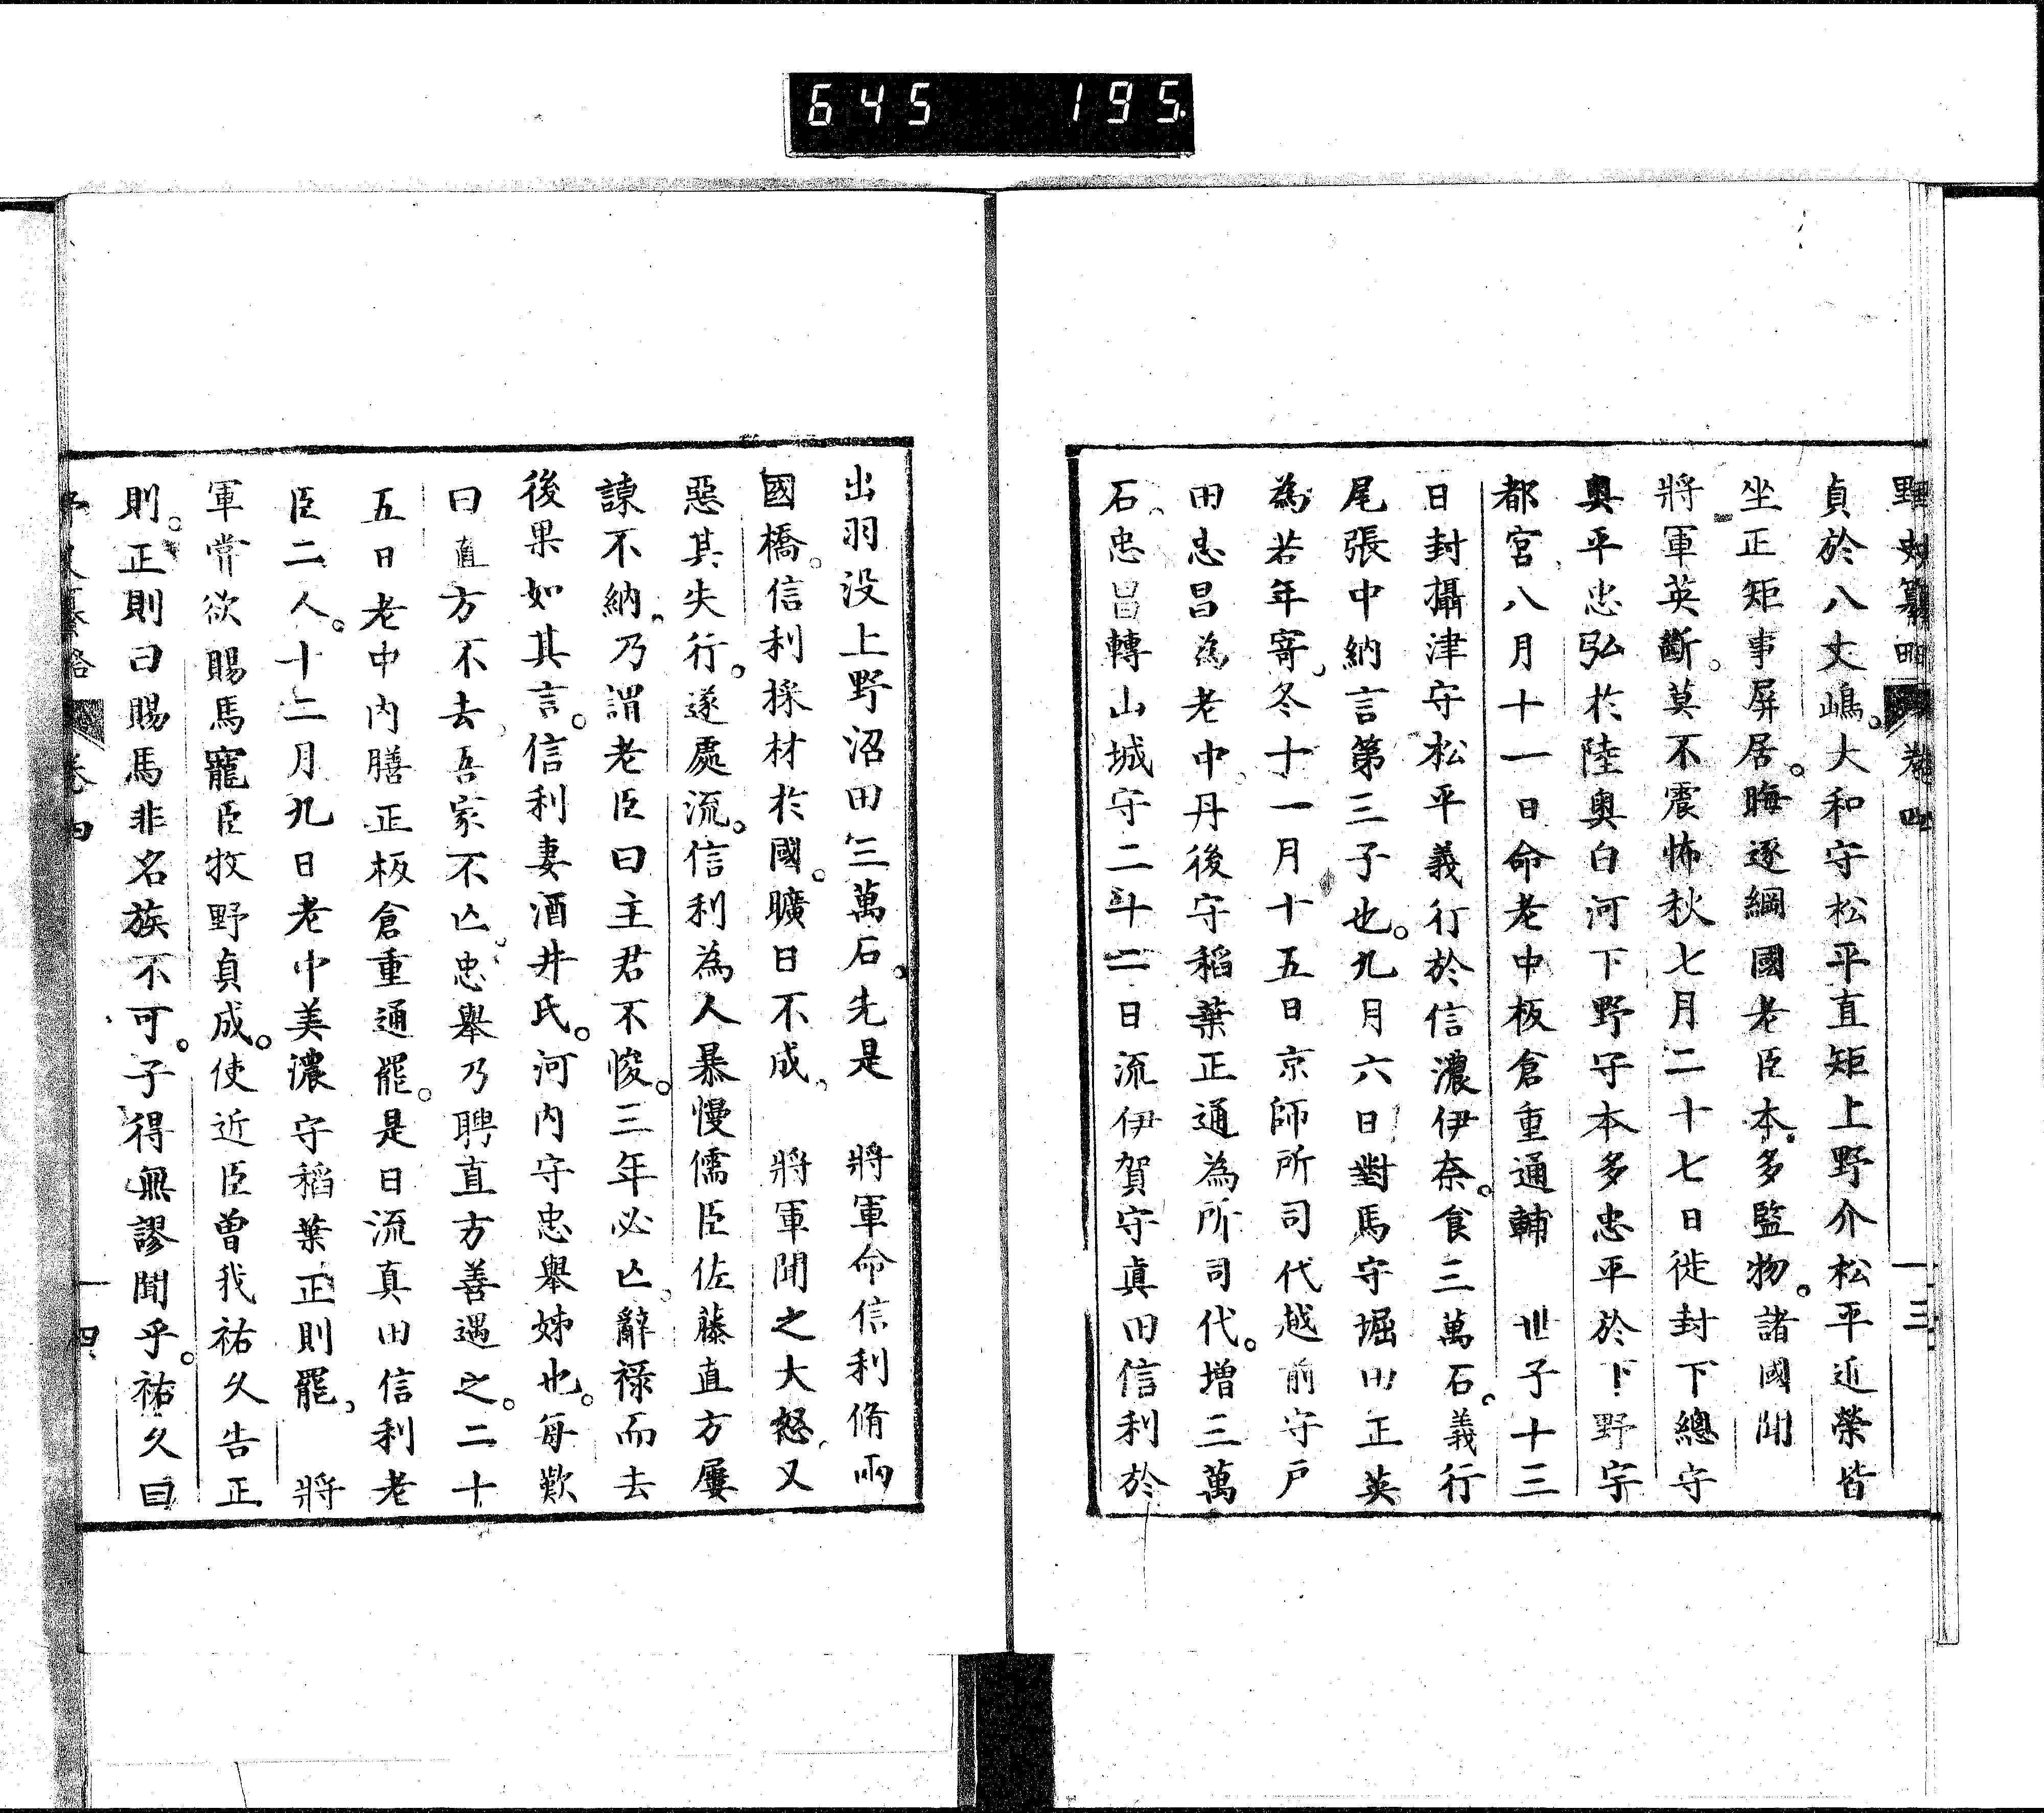 645 195
貞於八丈嶋。大和守松平直矩上野介松平近榮皆
坐正矩事屏居。晦逐綱國老臣本多監物。諸國聞
將軍英斷。莫不震怖秋七月二十七日徙封下總守
奥平忠弘於陸奥白河下野守本多忠平於下野宇
都宮八月十一日命老中板倉重通輔 世子十三
日封攝津守松平義行於信濃伊奈。食三萬石。義行
尾張中納言第三子也。九月六日對馬守堀田正英
為若年寄、冬十一月十五日京師所司代越前守戸
田忠昌為老中、丹後守稻葉正通為所司代。增三萬
石。忠昌轉山城守二十二日流伊賀守真田信利於
出羽没上野沼田三萬石。先是 將軍命信利脩兩
國橋。信利採材於國。曠日不成、 將軍聞之大怒、又
惡其失行。遂處流。信利為人暴慢儒臣佐藤直方屢
諫不納。乃謂老臣曰主君不悛。三年必亡。辭祿而去
後果如其言。信利妻酒井氏。河内守忠舉姊也。每歎
曰直方不去吾家不亡、忠舉乃聘直方善遇之。二十
五日老中内膳正板倉重通罷。是日流真田信利老
臣二人。十二月九日老中美濃守稻葉正則罷、 將
軍常欲賜馬寵臣牧野貞成。使近臣曽我祐久告正
則。正則曰賜馬非名族不可。子得無謬聞乎。祐久曰
卷四
一四
卷四
一三